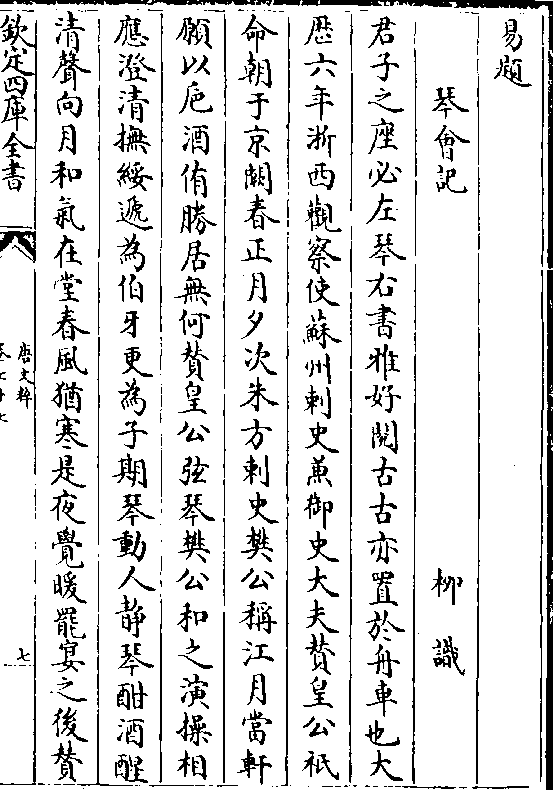 易題
琴會記
柳識
君子之座必左琴右書雅好閱古古亦置於舟車也大
厯六年浙西觀察使蘇州刺史兼御史大夫贊皇公祗
命朝于京闕春正月夕次朱方刺史樊公稱江月當軒
願以卮酒侑勝居無何贊皇公弦琴樊公和之演操相
應澄清撫綏遞為伯牙更為子期琴動人靜琴酣酒醒
清聲向月和氣在堂春風猶寒是夜覺暖罷宴之後贊
欽定四庫全書
唐文粹
七